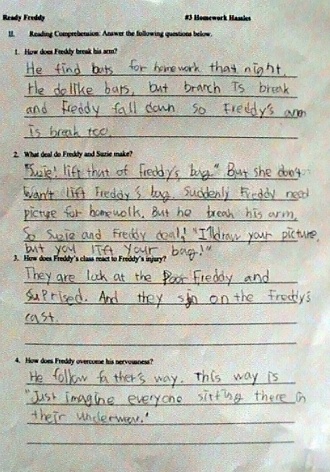 Ready Freddy #3 Homework Hassles
II. Reading Comprehension: Answer the following questions below.
1. How does Freddy break his arm?
He find bats for homework that night.
He do like bats, but branch Is break
and Freddy fall down so Freddy's arm
is break too.
2. What deal do Freddy and Suzie make?
"Suzie! lift that of Freddy's bag." But she don't
want lift Freddy's bag. Suddenly Freddy need
picture for homewolk. But he break his arm.
So Suzie and Freddy deal! "I'll draw your picture,
but you lift your bag!"
3. How does Freddy's class react to Freddy's injury?
They are look at the Poor Freddy and
suprised. And they sign on the Freddy's
cast.
4. How does Freddy overcome his nervousness?
He follow father's way. This way is
"Just imagine everyone sitting there in
their underwear."